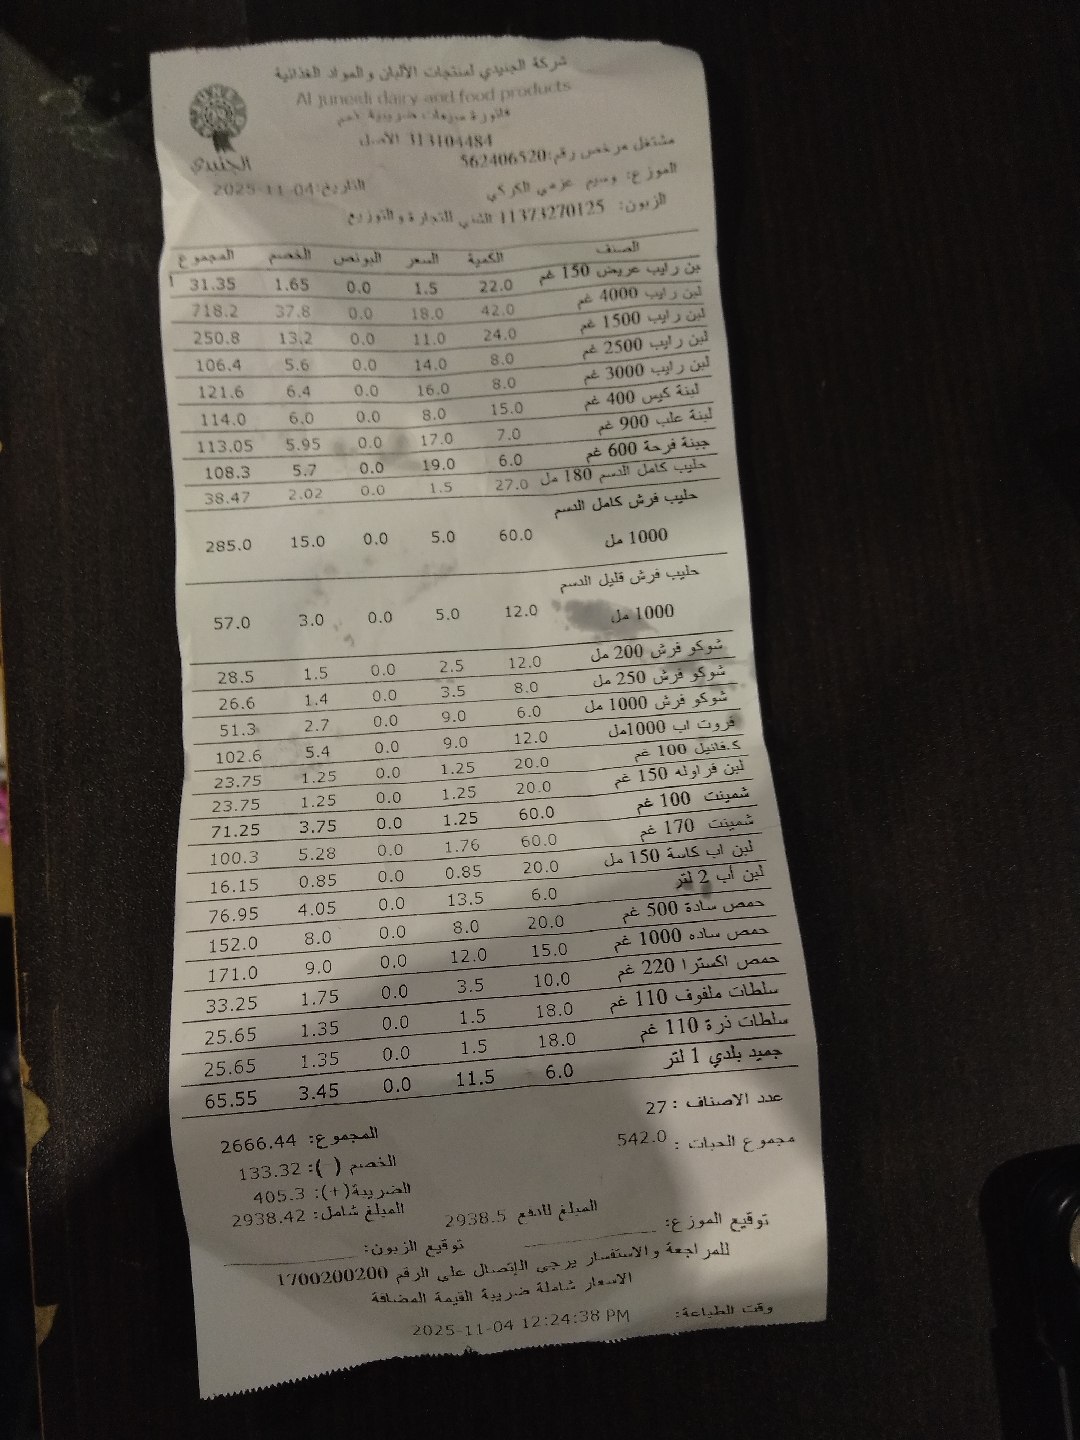 شركة الجنيدي لمنتجات الألبان والمواد الغذائية
Al juneidi dairy and food products
فاتورة مبيعات ضريبية
313104484 الأصل
الجنيدي
مشتغل مرخص رقم:562406520
الموزع: وسيم عزمي الكركي
التاريخ:2025-11-04
الزبون: 11373270125 للتجارة والتوزيع
الصنف الكمية السعر البونص الخصم المجموع
بن رايب عريض 150 غم 22.0 1.5 0.0 1.65 31.35
لبن رايب 4000 غم 42.0 18.0 0.0 37.8 718.2
لبن رايب 1500 غم 24.0 11.0 0.0 13.2 250.8
لبن رايب 2500 غم 8.0 14.0 0.0 5.6 106.4
لبن رايب 3000 غم 8.0 16.0 0.0 6.4 121.6
لبنة كيس 400 غم 15.0 8.0 0.0 6.0 114.0
لبنة علب 900 غم 7.0 17.0 0.0 5.95 113.05
جبنة فرحة 600 غم 6.0 19.0 0.0 5.7 108.3
حليب كامل الدسم 180 مل 27.0 1.5 0.0 2.02 38.47
حليب فرش كامل الدسم
1000 مل 60.0 5.0 0.0 15.0 285.0
حليب فرش قليل الدسم
1000 مل 12.0 5.0 0.0 3.0 57.0
شوكو فرش 200 مل 12.0 2.5 0.0 1.5 28.5
شوكو فرش 250 مل 8.0 3.5 0.0 1.4 26.6
شوكو فرش 1000 مل 6.0 9.0 0.0 2.7 51.3
فروت اب 1000مل 12.0 9.0 0.0 5.4 102.6
ك.فانيل 100 غم 20.0 1.25 0.0 1.25 23.75
لبن فراوله 150 غم 20.0 1.25 0.0 1.25 23.75
شمينت 100 غم 60.0 1.25 0.0 3.75 71.25
شمينت 170 غم 60.0 1.76 0.0 5.28 100.3
لبن اب كاسة 150 مل 20.0 0.85 0.0 0.85 16.15
لبن أب 2 لتر 6.0 13.5 0.0 4.05 76.95
حمص سادة 500 غم 20.0 8.0 0.0 8.0 152.0
حمص ساده 1000 غم 15.0 12.0 0.0 9.0 171.0
حمص اكسترا 220 غم 10.0 3.5 0.0 1.75 33.25
سلطات ملفوف 110 غم 18.0 1.5 0.0 1.35 25.65
سلطات ذرة 110 غم 18.0 1.5 0.0 1.35 25.65
جميد بلدي 1 لتر 6.0 11.5 0.0 3.45 65.55
عدد الاصناف : 27
المجموع: 2666.44
مجموع الحبات : 542.0
الخصم (-): 133.32
الضريبة(+): 405.3
المبلغ شامل: 2938.42
المبلغ للدفع 2938.5
توقيع الموزع:
توقيع الزبون:
للمراجعة والاستفسار يرجى الإتصال على الرقم 1700200200
الاسعار شاملة ضريبة القيمة المضافة
وقت الطباعة: 2025-11-04 12:24:38 PM